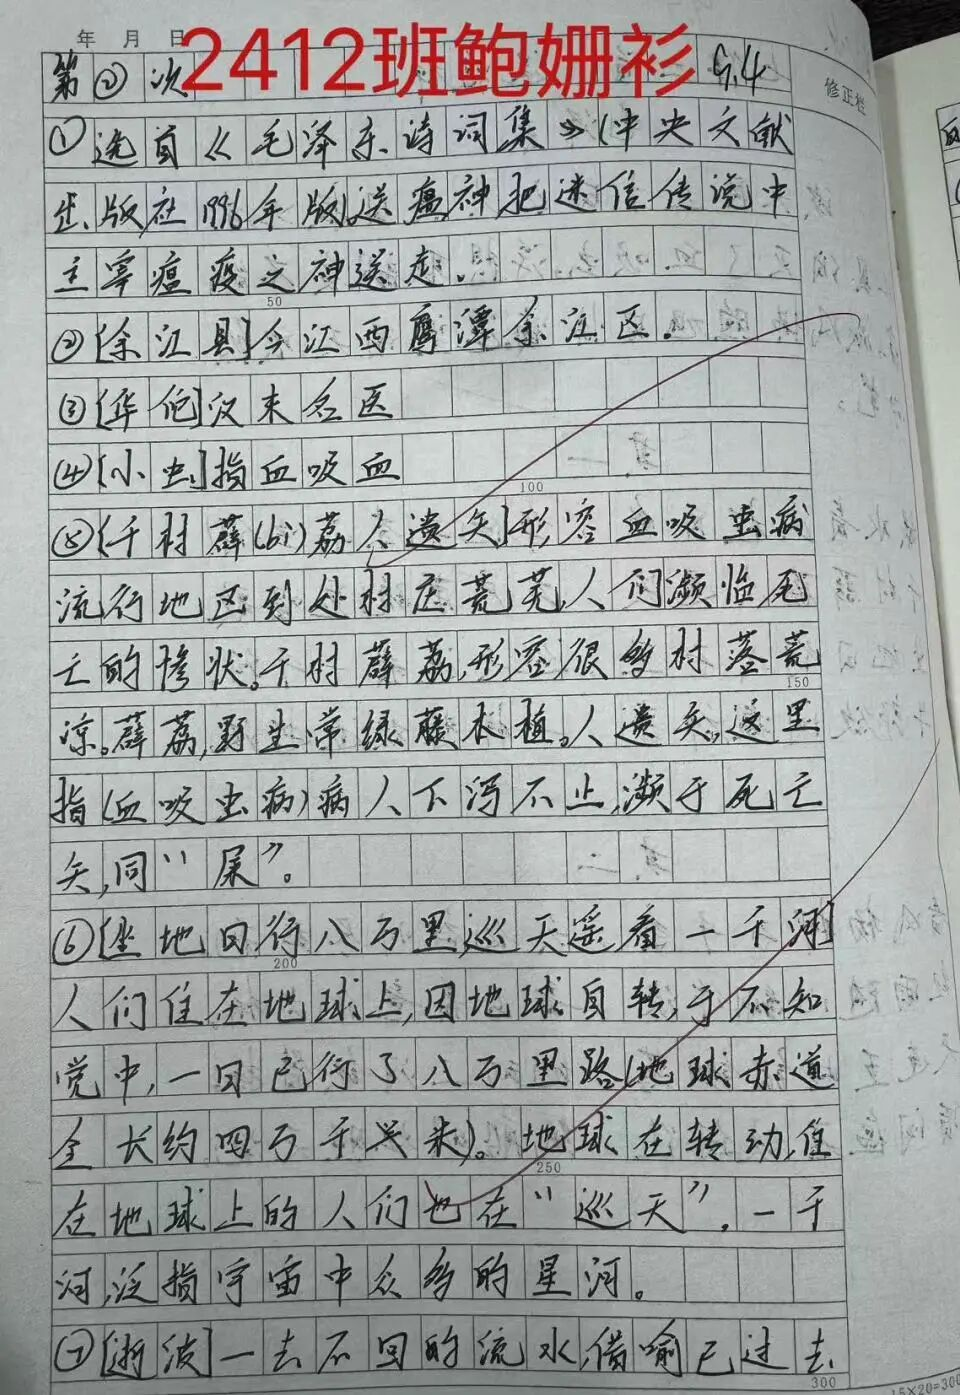 年 月 日
2412班鲍姗衫
第②次 9.4
修正栏
①选首《毛泽东诗词集》(中央文献
出版在1996年版)送瘟神把迷信传说中
主宰瘟疫之神送走。
50
②[余江县]今江西鹰潭余江区。
③[华佗]汉末名医
④[小虫]指血吸血
100
⑤[千村薜(bì)荔人遗矢]形容血吸虫病
流行地区到处村庄荒芜,人们濒临死
亡的惨状。千村薜荔,形容很多村落荒
150
凉。薜荔,野生常绿藤木植。人遗矢,这里
指(血吸虫病)病人下泻不止,濒于死亡
矢,同“屎”。
⑥[坐地日行八万里,巡天遥看一千河]
200
人们住在地球上,因地球自转,于不知
觉中,一日已行了八万里路(地球赤道
全长约四万千米)。地球在转动,住
250
在地球上的人们也在“巡天”。一千
河,泛指宇宙中众多的星河。
⑦[逝波]一去不回的流水,借喻已过去
300
15×20=300